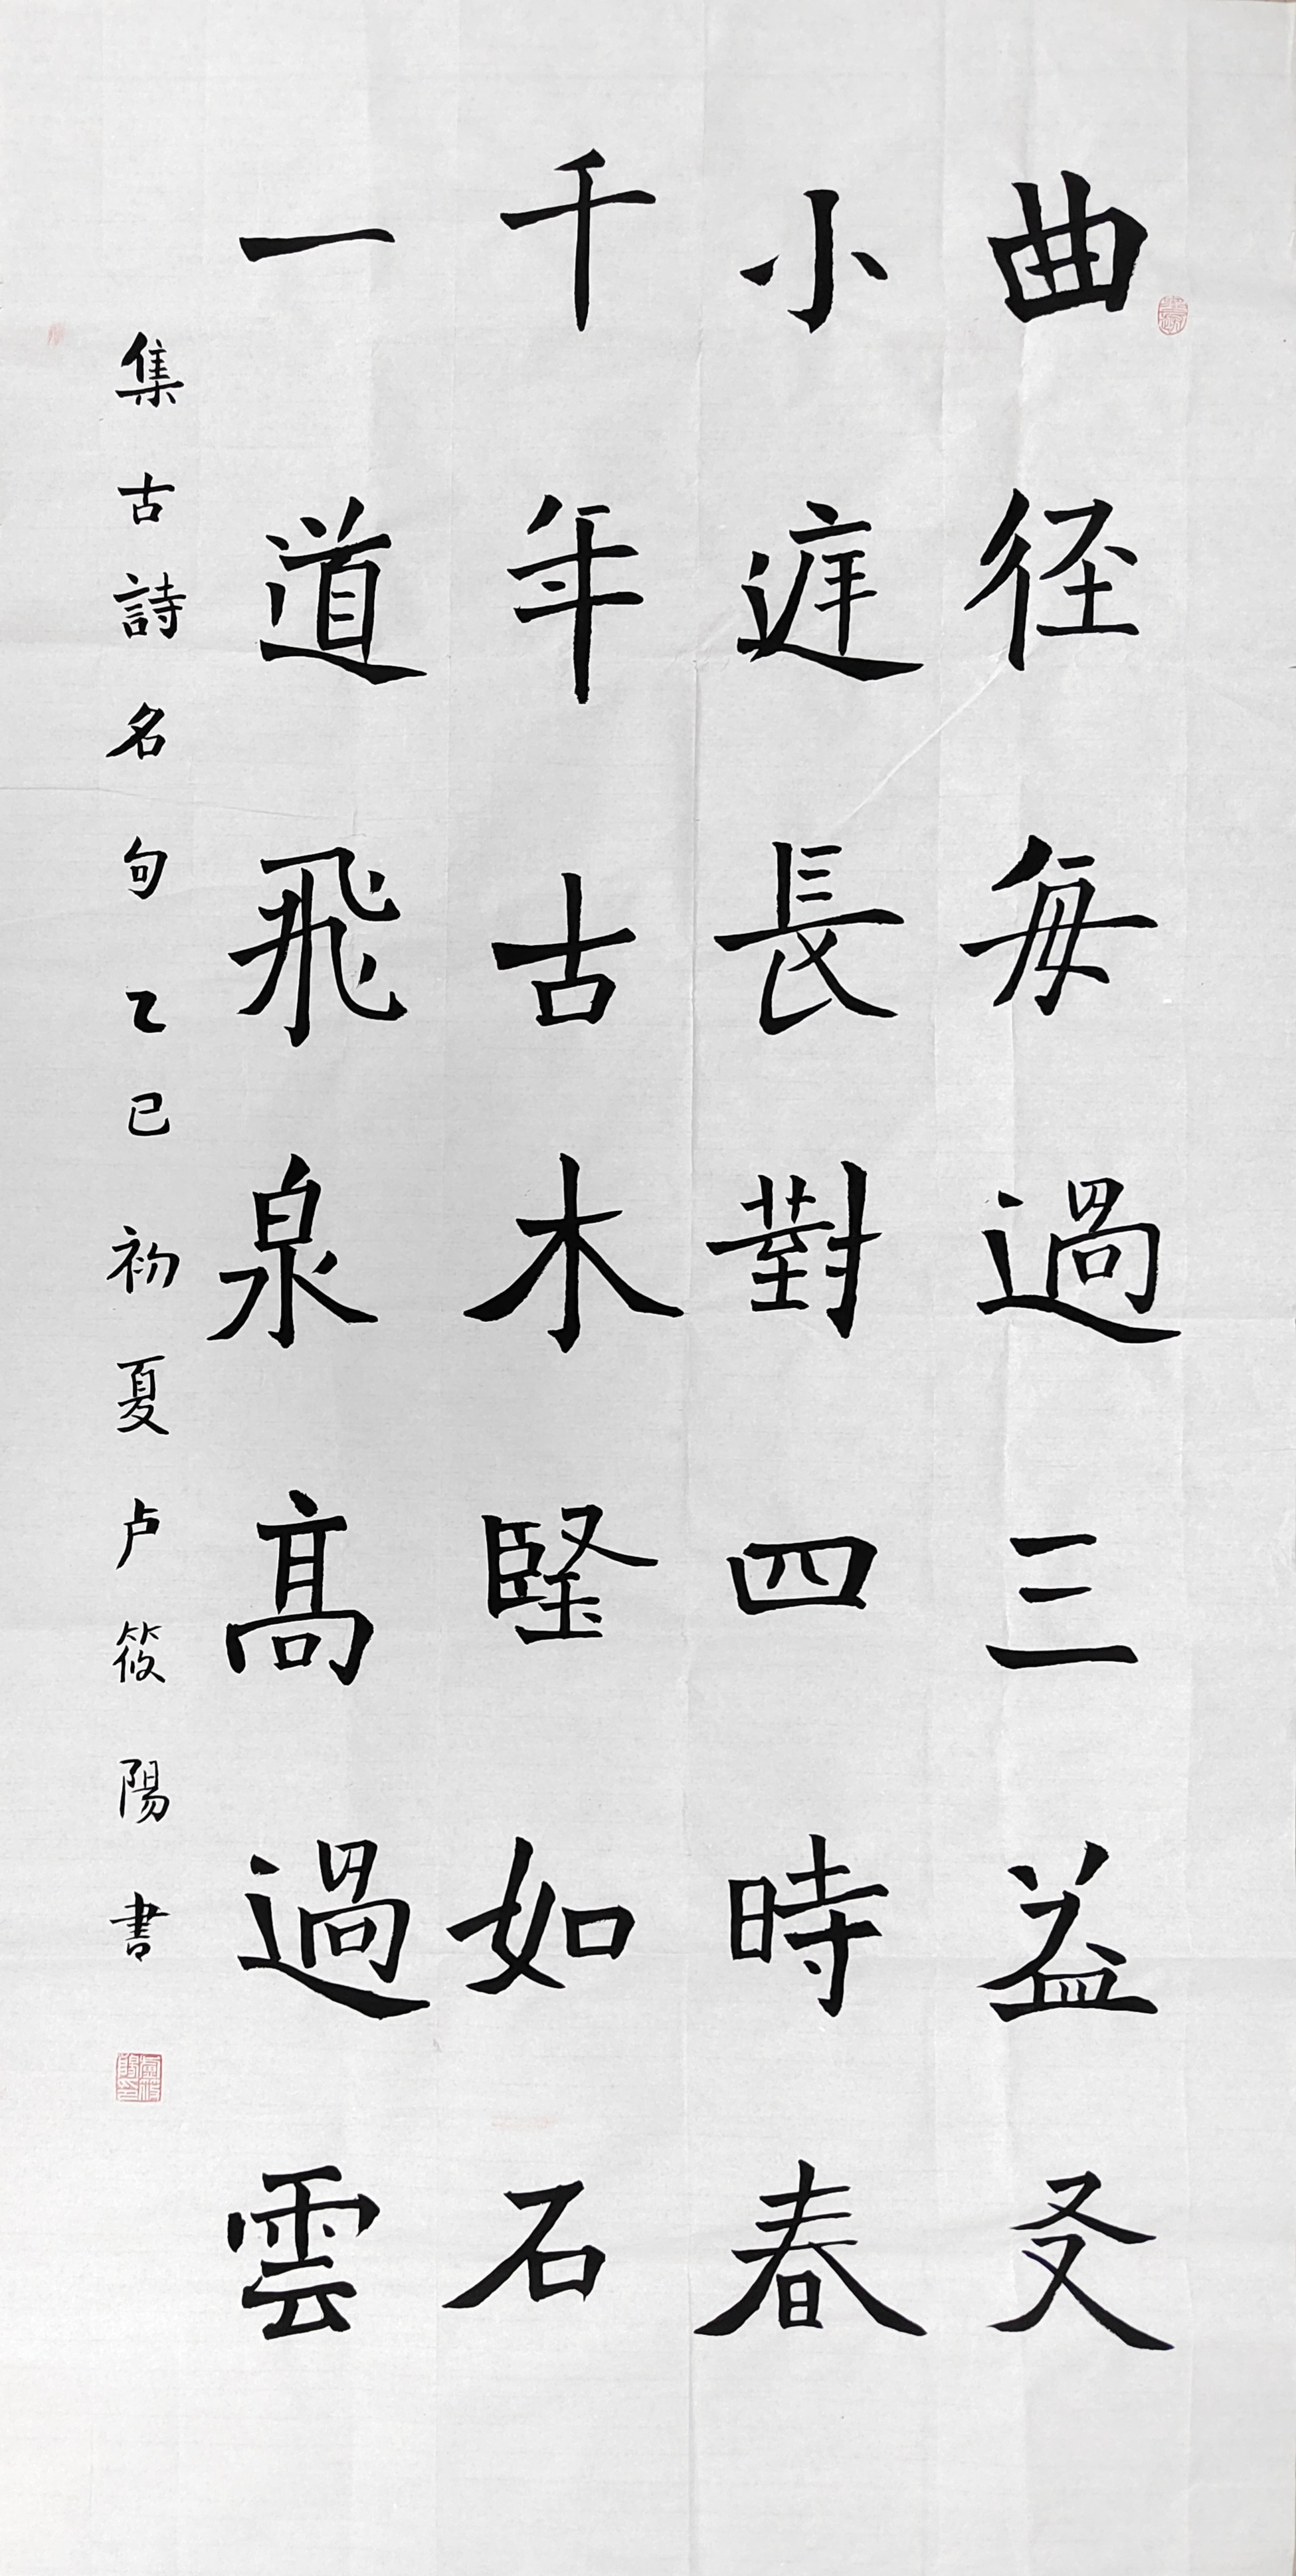 曲径每過三益友
小庭長對四時春
千年古木堅如石
一道飛泉高過雲
集古詩名句乙巳初夏卢筱陽書